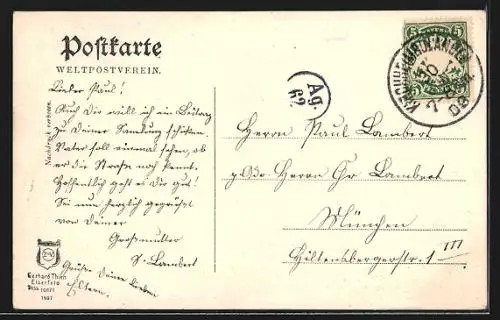 Postkarte
WELTPOSTVEREIN.
Nachdruck verboten.
Lieber Paul!
Auch Dir will ich ein Beitrag
zu Deiner Sandung schicken.
Vater soll einmal sehen, ob
er die Straße noch kennt.
Hoffentlich geht es Dir gut!
Sei nun herzlich gegrüßt
von Deiner
Großmutter
S. Lambert
Grüße Deine lieben
Eltern.
Gerhard Thien
Elberfeld
1907
Ag
62
BAYERN
5 5
Herrn Paul Lambert
p. Adr. Herrn Chr Lambert
München
Hiltensbergerstr. 1 III